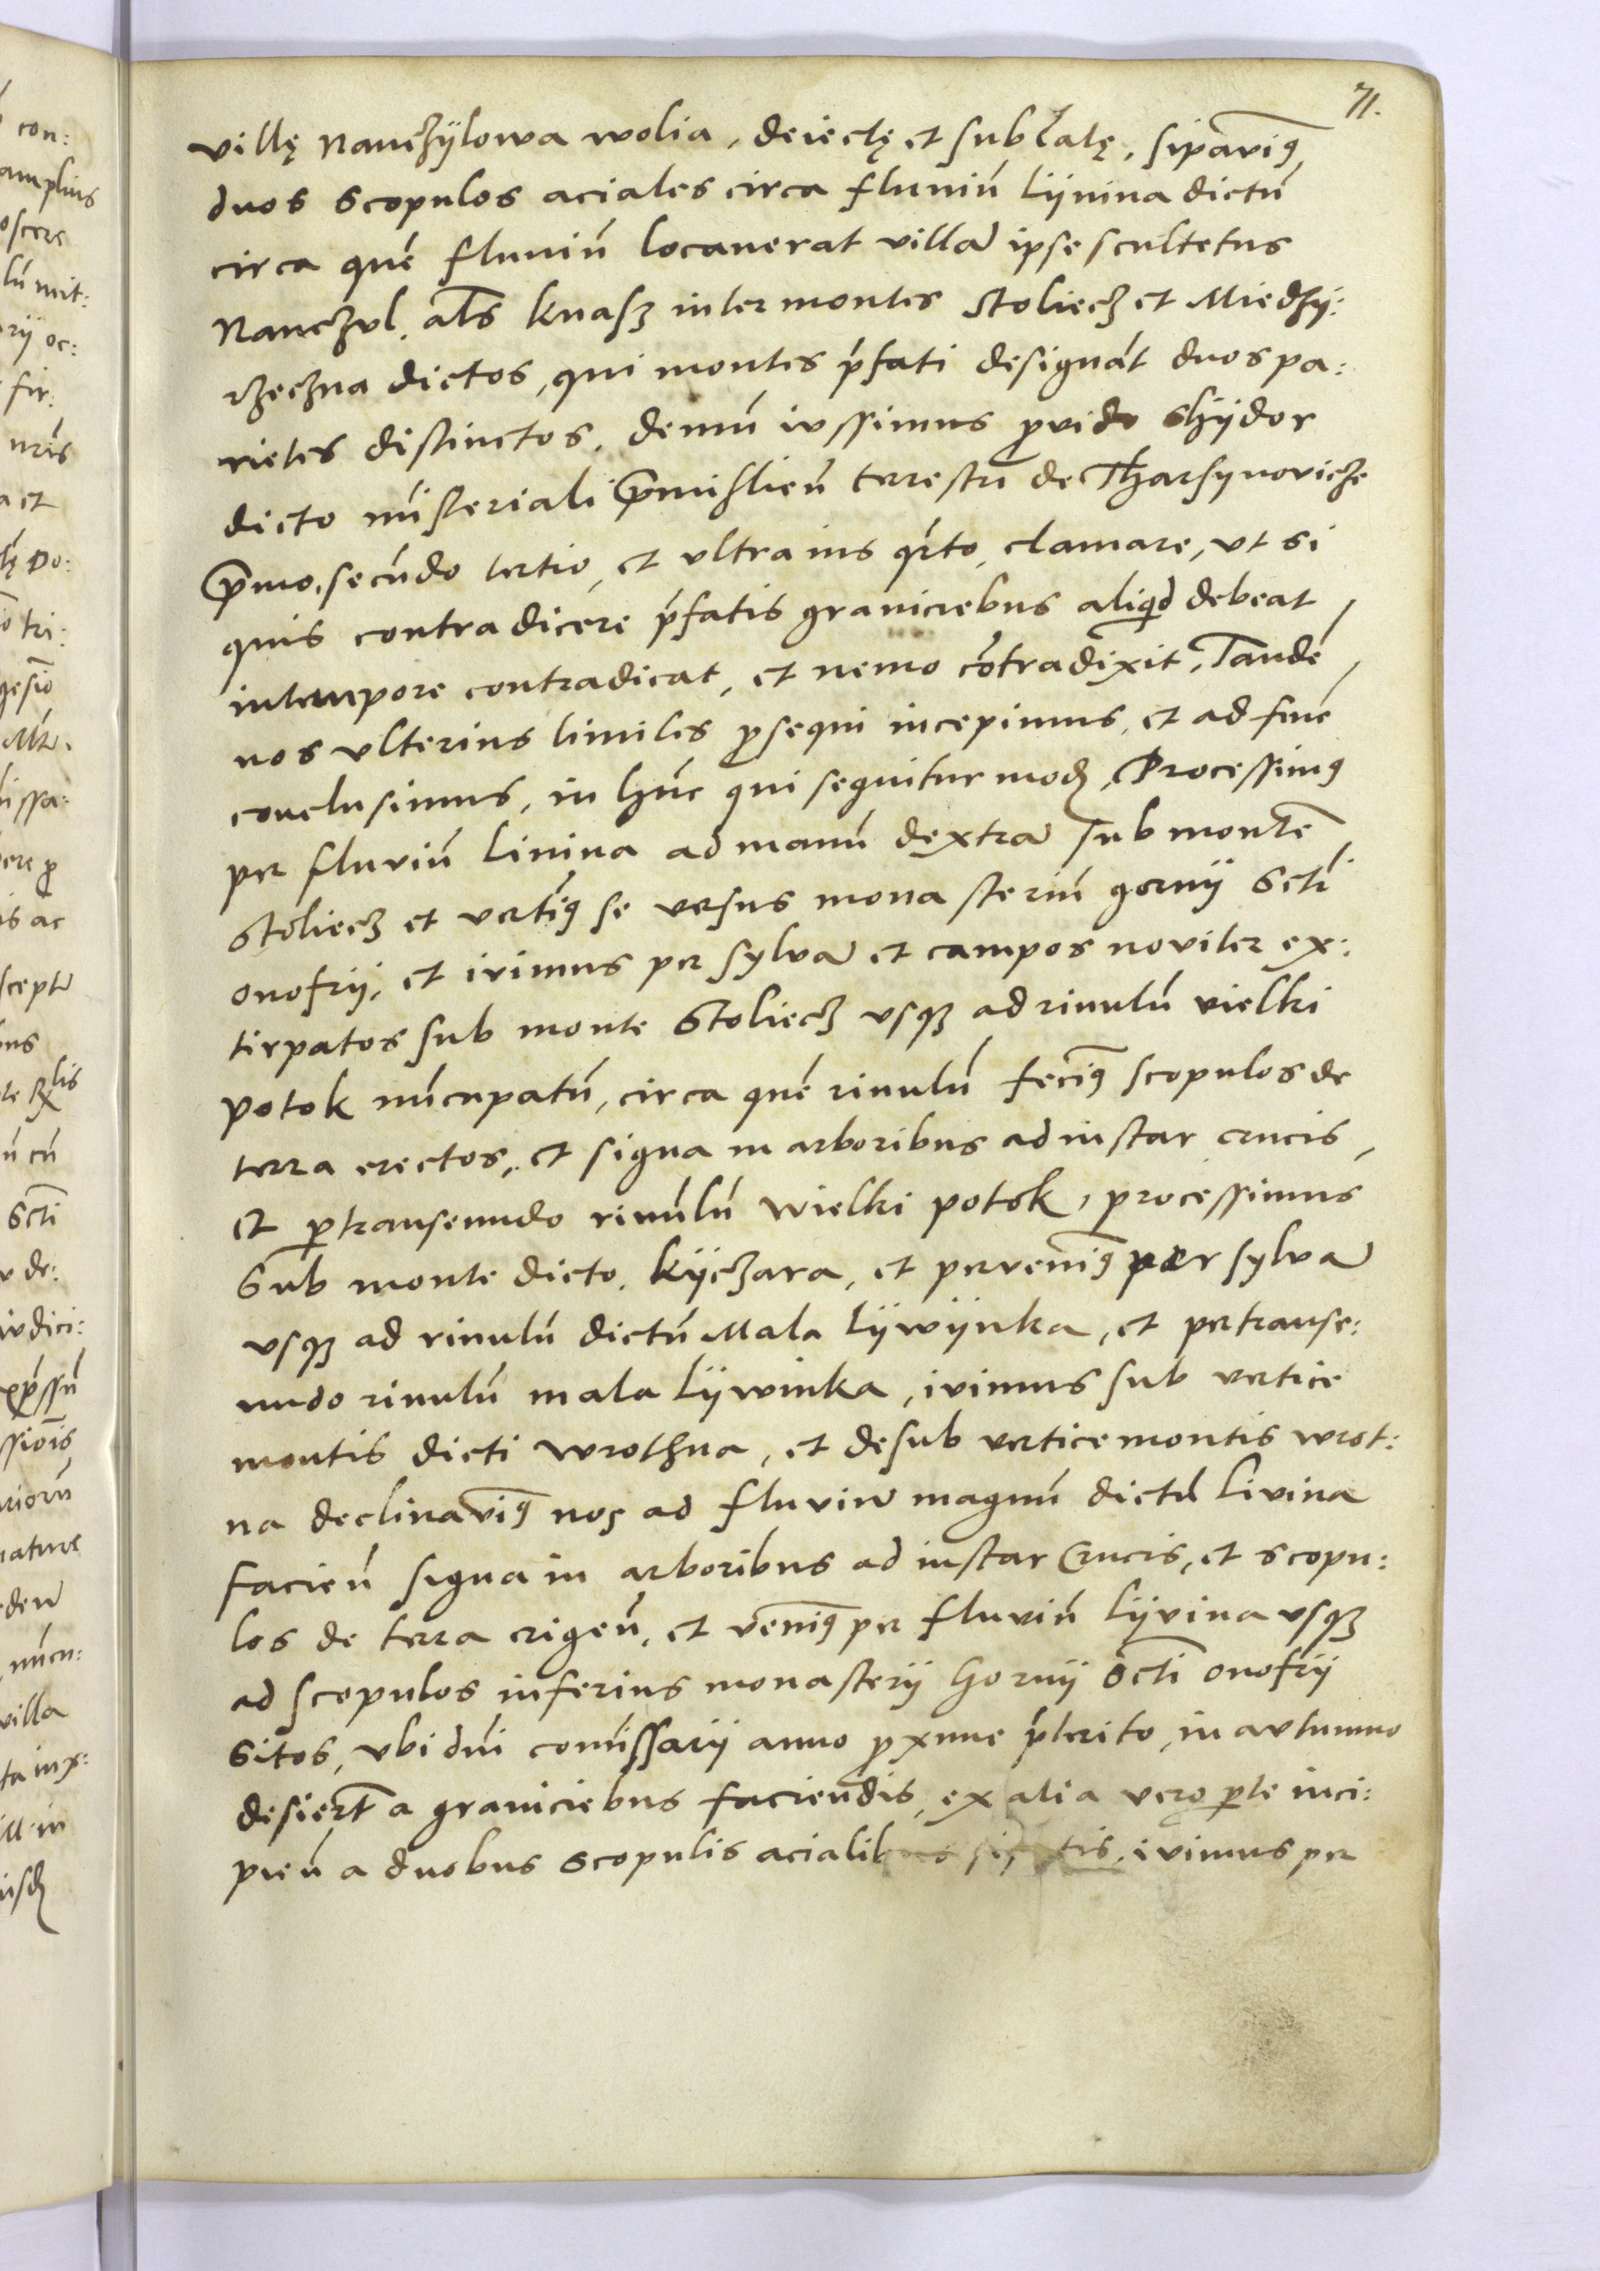 71.
villę Nanczÿlowa wolia, deiectę et sublatę, sipavim9
duos scopulos aciales circa fluuiū Lÿnina dictū
circa quē fluuiū locauerat villā ipse scultetus
Nanczul. als knasz inter montes Stoliecz et Miedzÿ:
rzeczna dictos, qui montes p̄fati designāt duos pa:
rietes distinctos, demū iussimus ꝓuido Shÿdor
dicto mīsteriali Premislień terrestri de Tharsynoviche
Prmo, secūdo tertio, et ultra ius qrto, clamare, ut si
quis contradicere p̄fatis graniciebus aliqid debeat
in tempore contradicat, et nemo cōtradixit, Tandē
nos ulterius limites ꝓsequi incepimus, et ad finē
conclusimus, in hūc qui sequitur modū, Processim9
per fluviū Linina ad manū dextrā sub montē
Stoliecz et vertim9 se versus monasteriū gornÿ Scti
onofrij, et ivimus per sylvā et campos noviter ex:
tirpatos sub monte Stoliecz usqz ad riuulū vielki
potok nūcupatū, circa quē riuulū fecim9 scopulos de
terra erectos, et signa in arboribus ad instar crucis,
et ꝑtranseundo riuulū Wielki potok, processimus
Sub monte dicto, Kÿczara, et pervenim9 per sylvā
usqz ad riuulū dictū Mala Lÿwÿnka, et pertranse:
undo riuulū mala Lÿwinka, ivimus sub vertice
montis dicti Wrothna, et desub vertice montis Wrot:
na declinavim9 nos ad fluviū magnū dictū Livina
facień signa in arboribus ad instar Crucis, et scopu:
los de terra erigeń, et venim9 per fluviū Lÿvina usqz
ad scopulos inferius monasterÿ hornÿ Scti onofrÿ
sitos, ubi dn̄i comīssarij anno ꝓxime p̄terito, in autumno
desiert a graniciebus faciendis, ex alia vero ꝑte inci:
pień a duobus scopulis acialibus ivimus per